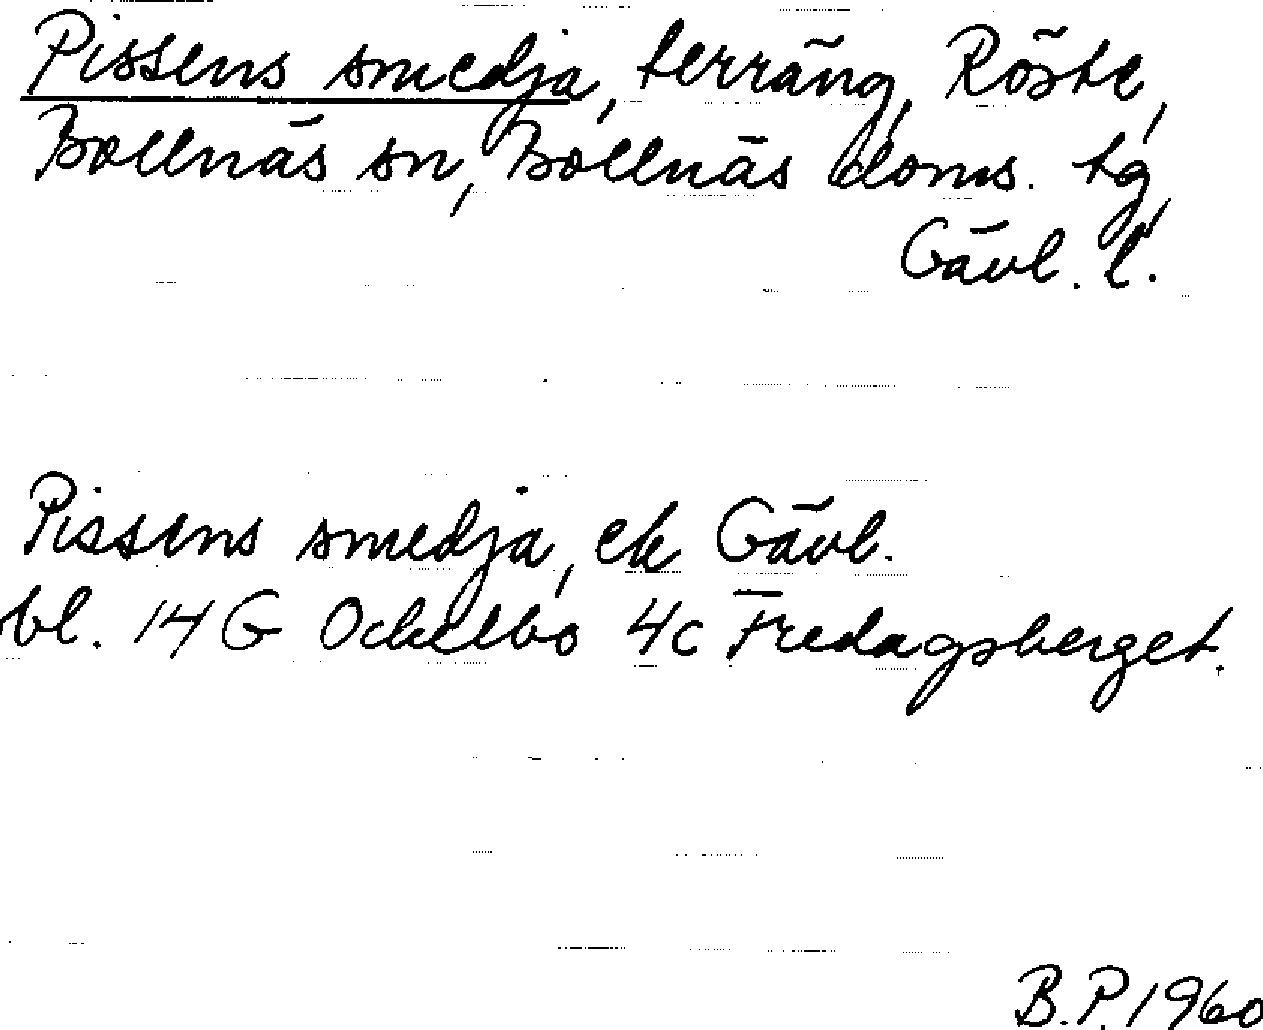 Pissens smedja, terräng, Röste,
Bollnäs sn, Bollnäs doms. tg,
Gävl. l.
Pissens smedja, ek Gävl.
bl. 14 G Ockelbo 4c Fredagsberget.
B.P. 1960